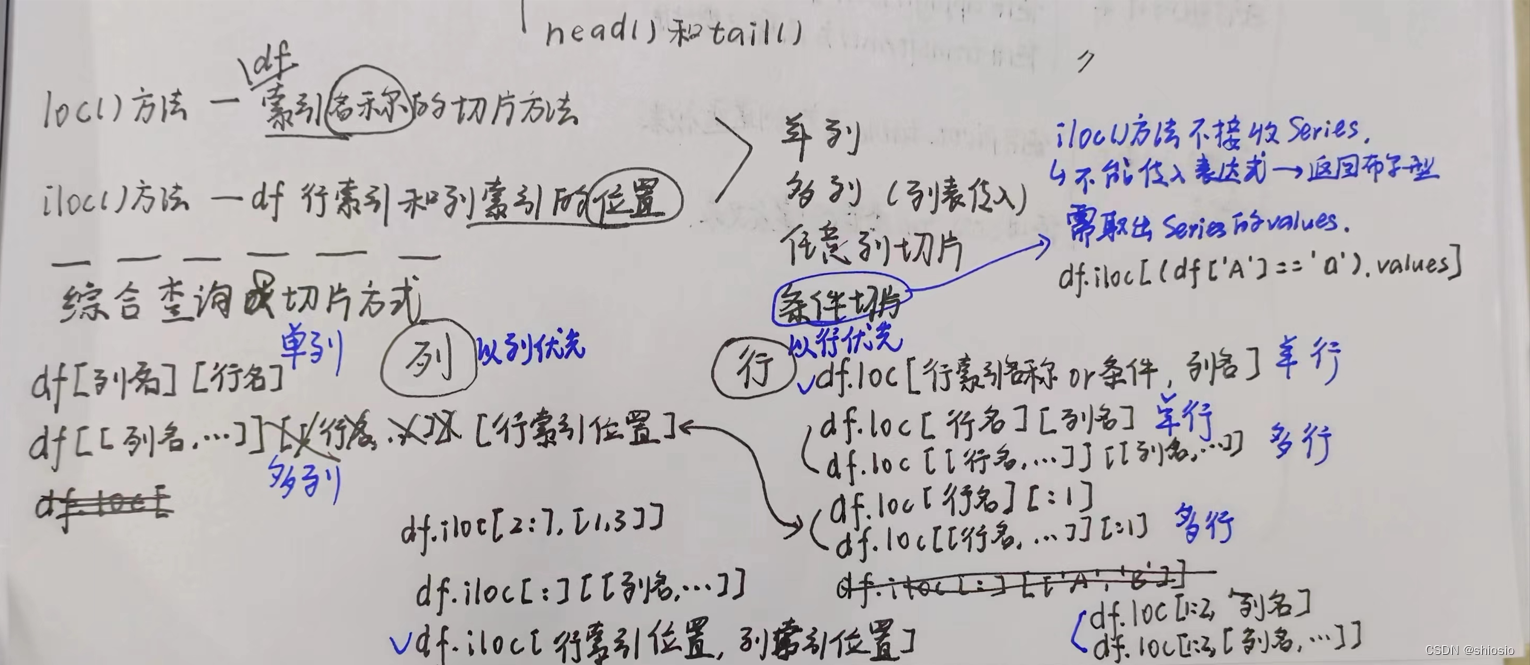 head()和tail()
df
loc()方法 — 索引名称的切片方法
iloc()方法 — df 行索引和列索引的位置
单列
多列（列表传入）
任意列切片
条件切片
iloc()方法不接收Series.
↳不能传入表达式→返回布尔型
需取出Series的values.
df.iloc[(df['A']=='a').values]
综合查询 切片方式
单列
列 以列优先
df[列名][行名]
df[[列名,…]] [行索引位置]
多列
df.loc[
df.iloc[2:],[1,3]]
df.iloc[:][[列名,…]]
√df.iloc[行索引位置, 列索引位置]
行 以行优先
√df.loc[行索引名称or条件, 列名] 单行
df.loc[行名][列名] 单行
df.loc[[行名,…]][[列名,…]] 多行
df.loc[行名][:1]
df.loc[[行名,…]][:1] 多行
df.iloc[:][['A','B']]
df.loc[1:2, '列名]
df.loc[1:2,[列名,…]]
CSDN @shiosio